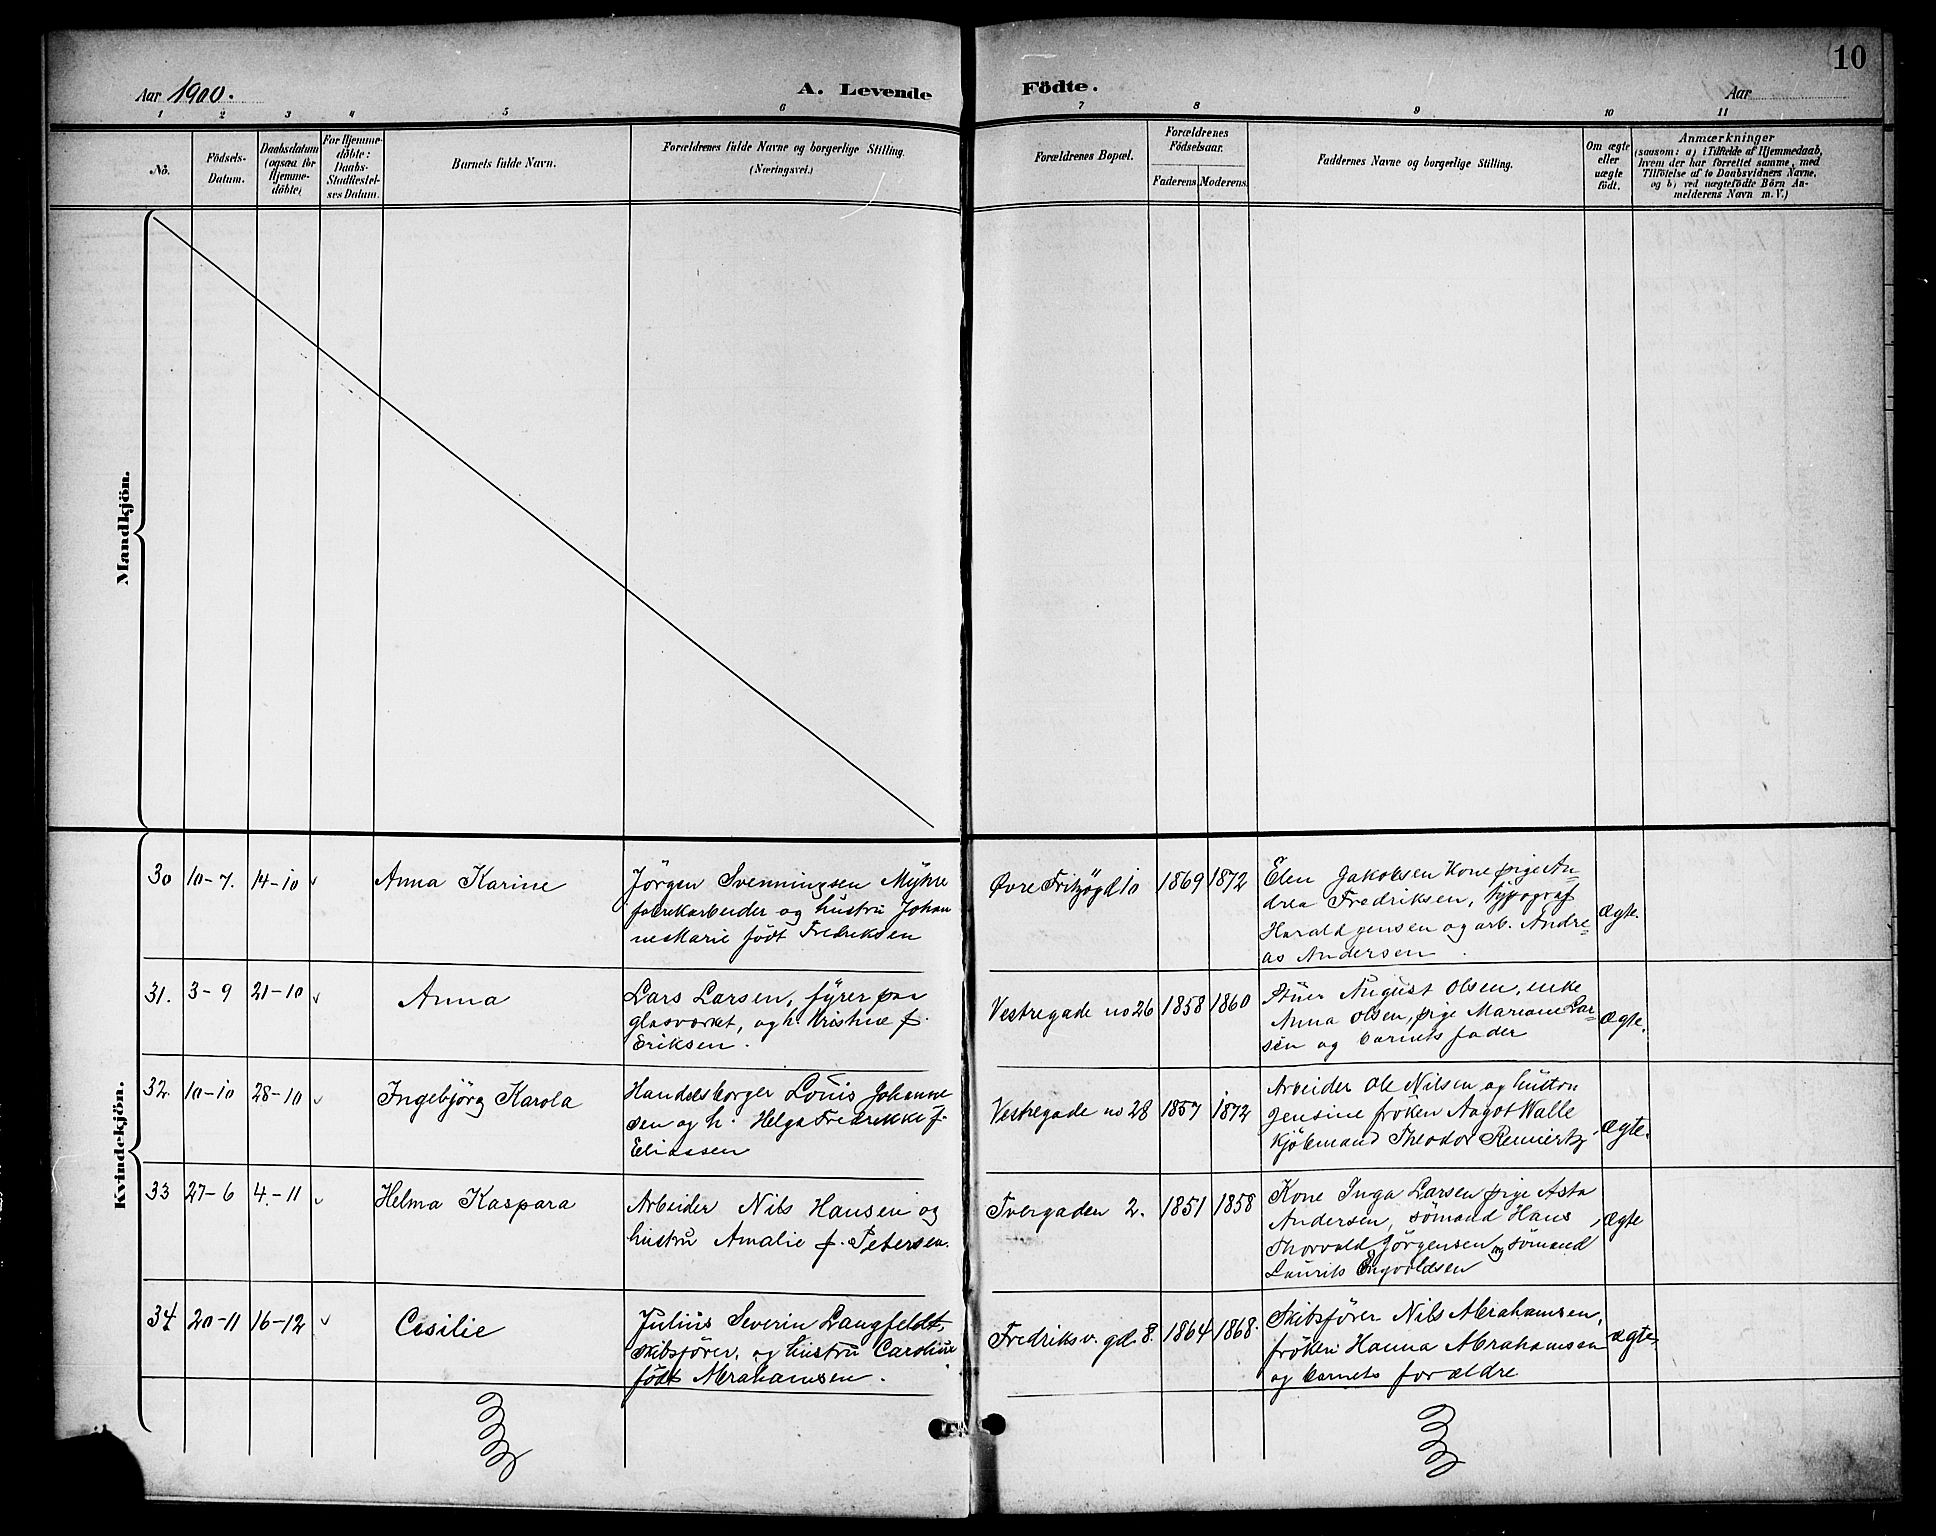 10
Aar 1900.
A. Levende Födte.
Aar
1 2 3 4 5 6 7 8 9 10 11
No.
Födsels-
Datum.
Daabsdatum
(ogsaa for
Hjemme-
döbte)
For Hjemme-
döbte:
Daabs-
Stadfæstel-
ses Datum.
Barnets fulde Navn.
Forældrenes fulde Navne og borgerlige Stilling.
(Næringsvei.)
Forældrenes Bopæl.
Forældrenes
Födselsaar.
Faderens. Moderens.
Faddernes Navne og borgerlige Stilling.
Om ægte
eller
uægte
födt.
Anmærkninger
(saasom: a) i Tilfælde af Hjemmedaab,
hvem der har forrettet samme, med
Tilföielse af to Daabsvidners Navne,
og b) ved uægtefödte Börn An-
melderens Navn m.V.)
Mandkjön.
Kvindekjön.
30 10-7. 14-10 Anna Karine
Jörgen Svenningsen Myhre
fabrikarbeider og hustru Johan
ne Marie födt Fredriksen
Øvre Fritzögd 10 1869 1872
Elen Jakobsen Kone pige An-
drea Fredriksen, typograf
Harald Jensen og arb. Andre-
as Andersen
ægte.
31. 3-9 21-10 Anna
Lars Larsen, fyrer paa
glasværket, og h. Kristine f.
Eriksen.
Vestregade no 26 1858 1860
August Olsen, enke
Anna Olsen, pige Mariane Lar-
sen og barnets fader
ægte.
32. 10-10 28-10 Ingebjörg Karola
Handelsborger Louis Johanne
sen og h. Helga Fredrikke f.
Eliassen
Vestregade no 28 1857 1872
Arbeider Ole Nilsen og hustru
Jensine fröken Aagot Walle
Kjöbmand Theodor Reinertz
ægte.
33 27-6 4-11 Helma Kaspara
Arbeider Nils Hansen og
hustru Amalie f. Petersen.
Tvergaden 2. 1851 1858
Kone Inga Larsen pige Asta
Andersen, sömand Hans
Thorvald Jörgensen og sömand
Laurits Engvoldsen
ægte
34 20-11 16-12 Cesilie
Julius Severin Langfeldt,
skibsförer, og hustru Caroline
födt Abrahamsen.
Fredriksv. gd. 8. 1864 1868.
Skibsförer Nils Abrahamsen,
fröken Hanna Abrahamsen
og barnets forældre
ægte